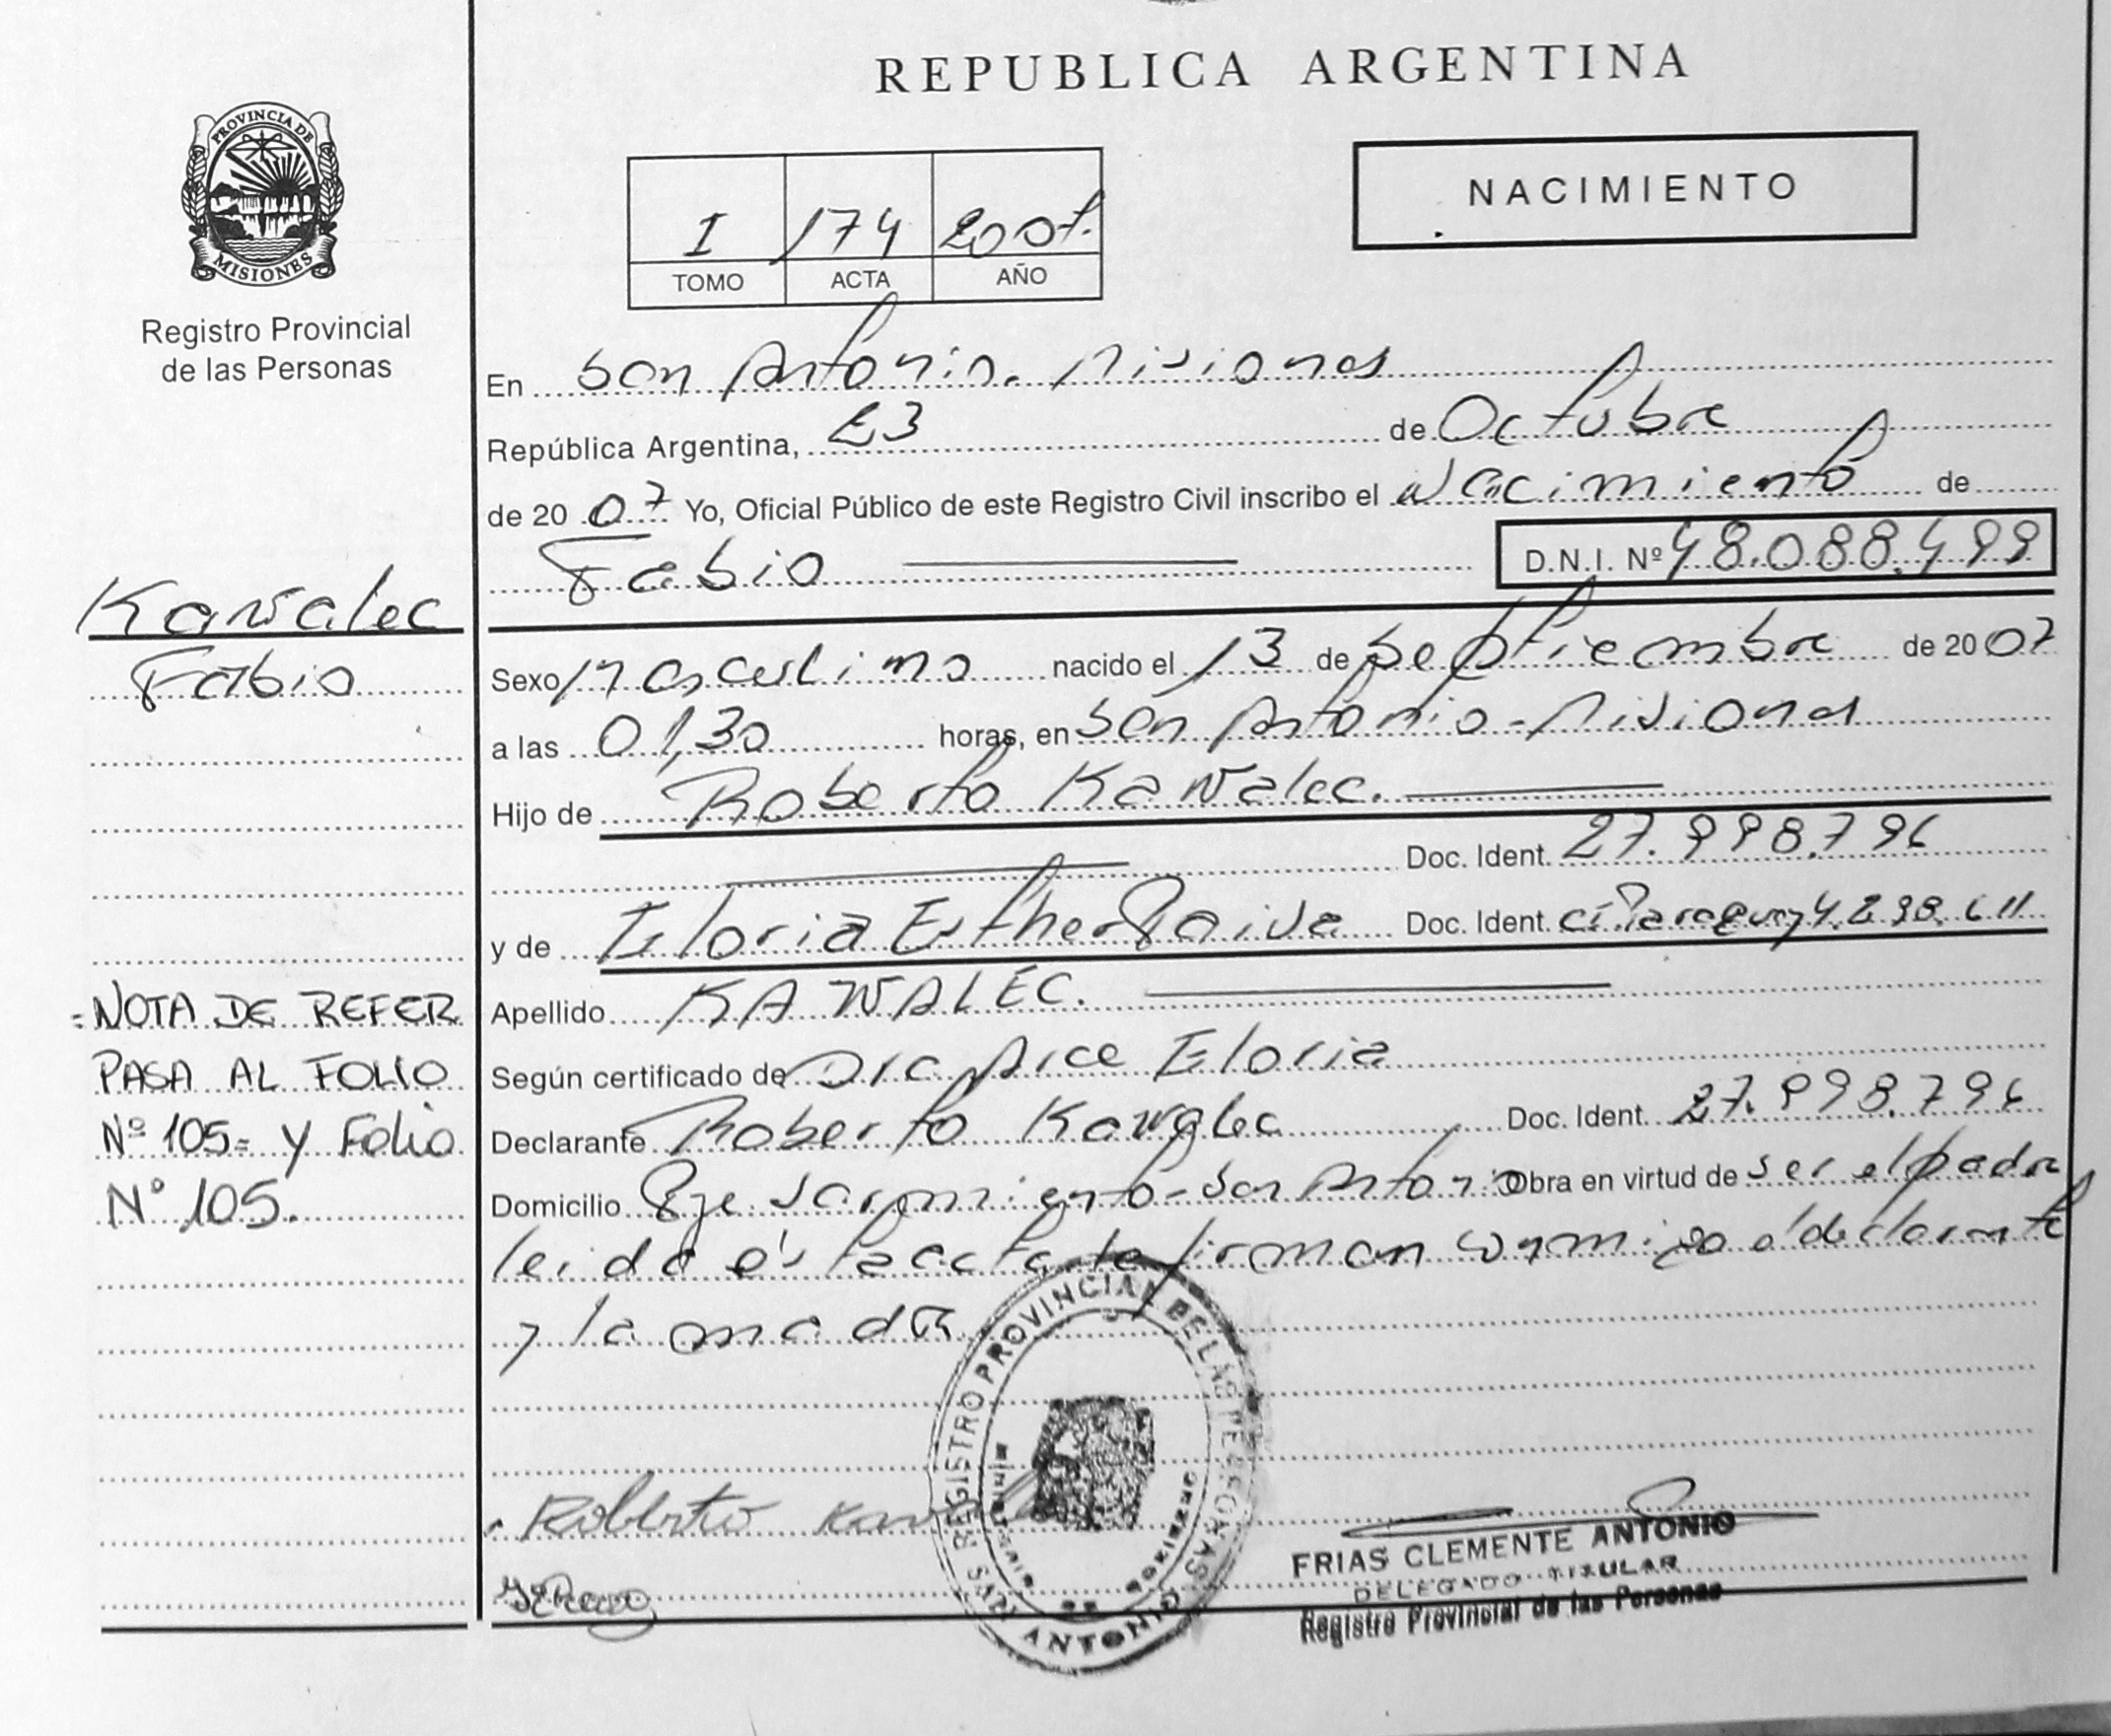 REPUBLICA ARGENTINA
PROVINCIA DE MISIONES
Registro Provincial
de las Personas
I 174 2007.
TOMO ACTA AÑO
NACIMIENTO
En San Antonio. Misiones
República Argentina, 23 de Octubre
de 20 07 Yo, Oficial Público de este Registro Civil inscribo el Nacimiento de
Fabio D.N.I. Nº 48.088.499
Kawalec
Fabio
Sexo Masculino nacido el 13 de Septiembre de 20 07
a las 01,30 horas, en San Antonio - Misiones
Hijo de Roberto Kawalec.
Doc. Ident. 27.998.796
y de Gloria Esther Paiva Doc. Ident. Paraguay 4.298.611
Apellido KAWALEC.
Según certificado de Dra Gloria
Declarante Roberto Kawalec Doc. Ident. 27.998.796
Domicilio Pje Sarmiento - San Antonio Obra en virtud de ser el padre
leida esta acta la firman conmigo el declarante
y la madre
=NOTA DE REFER
PASA AL FOLIO
Nº 105= Y Folio
N° 105.
Roberto
REGISTRO PROVINCIAL DE LAS PERSONAS
SAN ANTONIO
FRIAS CLEMENTE ANTONIO
DELEGADO TITULAR
Registro Provincial de las Personas